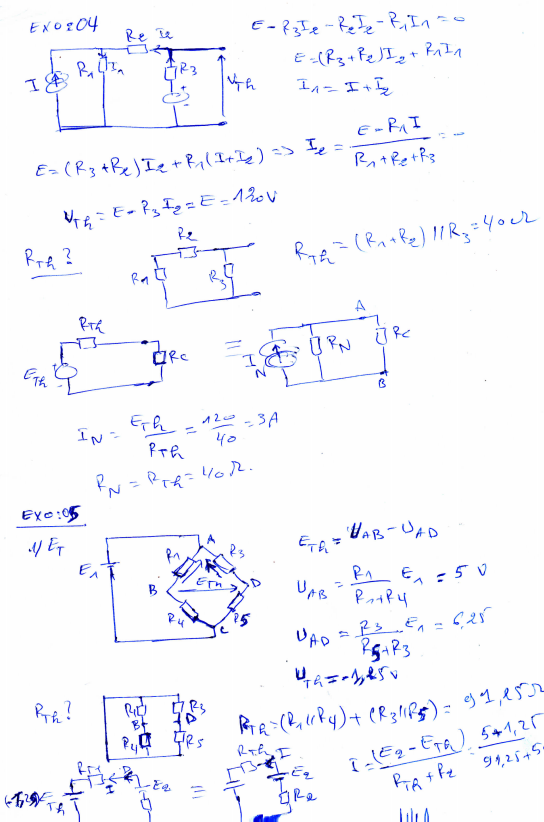 EXO:04
E - R3I2 - R2I2 - R1I1 = 0
E = (R3 + R2)I2 + R1I1
I1 = I + I2
R2 I2
I R1 I1 R3 VTh
+
-
E = (R3 + R2)I2 + R1(I + I2) => I2 = (E - R1I) / (R1 + R2 + R3) =
VTh = E - R3I2 = E = 120V
RTh?
R2
R1 R3
RTh = (R1 + R2) // R3 = 40 Ω
RTh
ETh RC
≡
A
IN RN RC
B
IN = ETh / RTh = 120 / 40 = 3A
RN = RTh = 40 Ω.
EXO:05
1/ ET
A
E1 R1 R3
B ETh D
R4 R5
C
ETh = UAB - UAD
UAB = R1 / (R1 + R4) E1 = 5 V
UAD = R3 / (R5 + R3) E1 = 6,25
UTh = -1,25V
RTh?
R1 R3
B D
R4 R5
RTh = (R1 // R4) + (R3 // R5) = 91,25 Ω
RTh B
(-1,25) ETh I E2
≡
RTh I
E2
R2
I = (E2 - ETh) / (RTh + R2) = 5+1,25 / 91,25+5